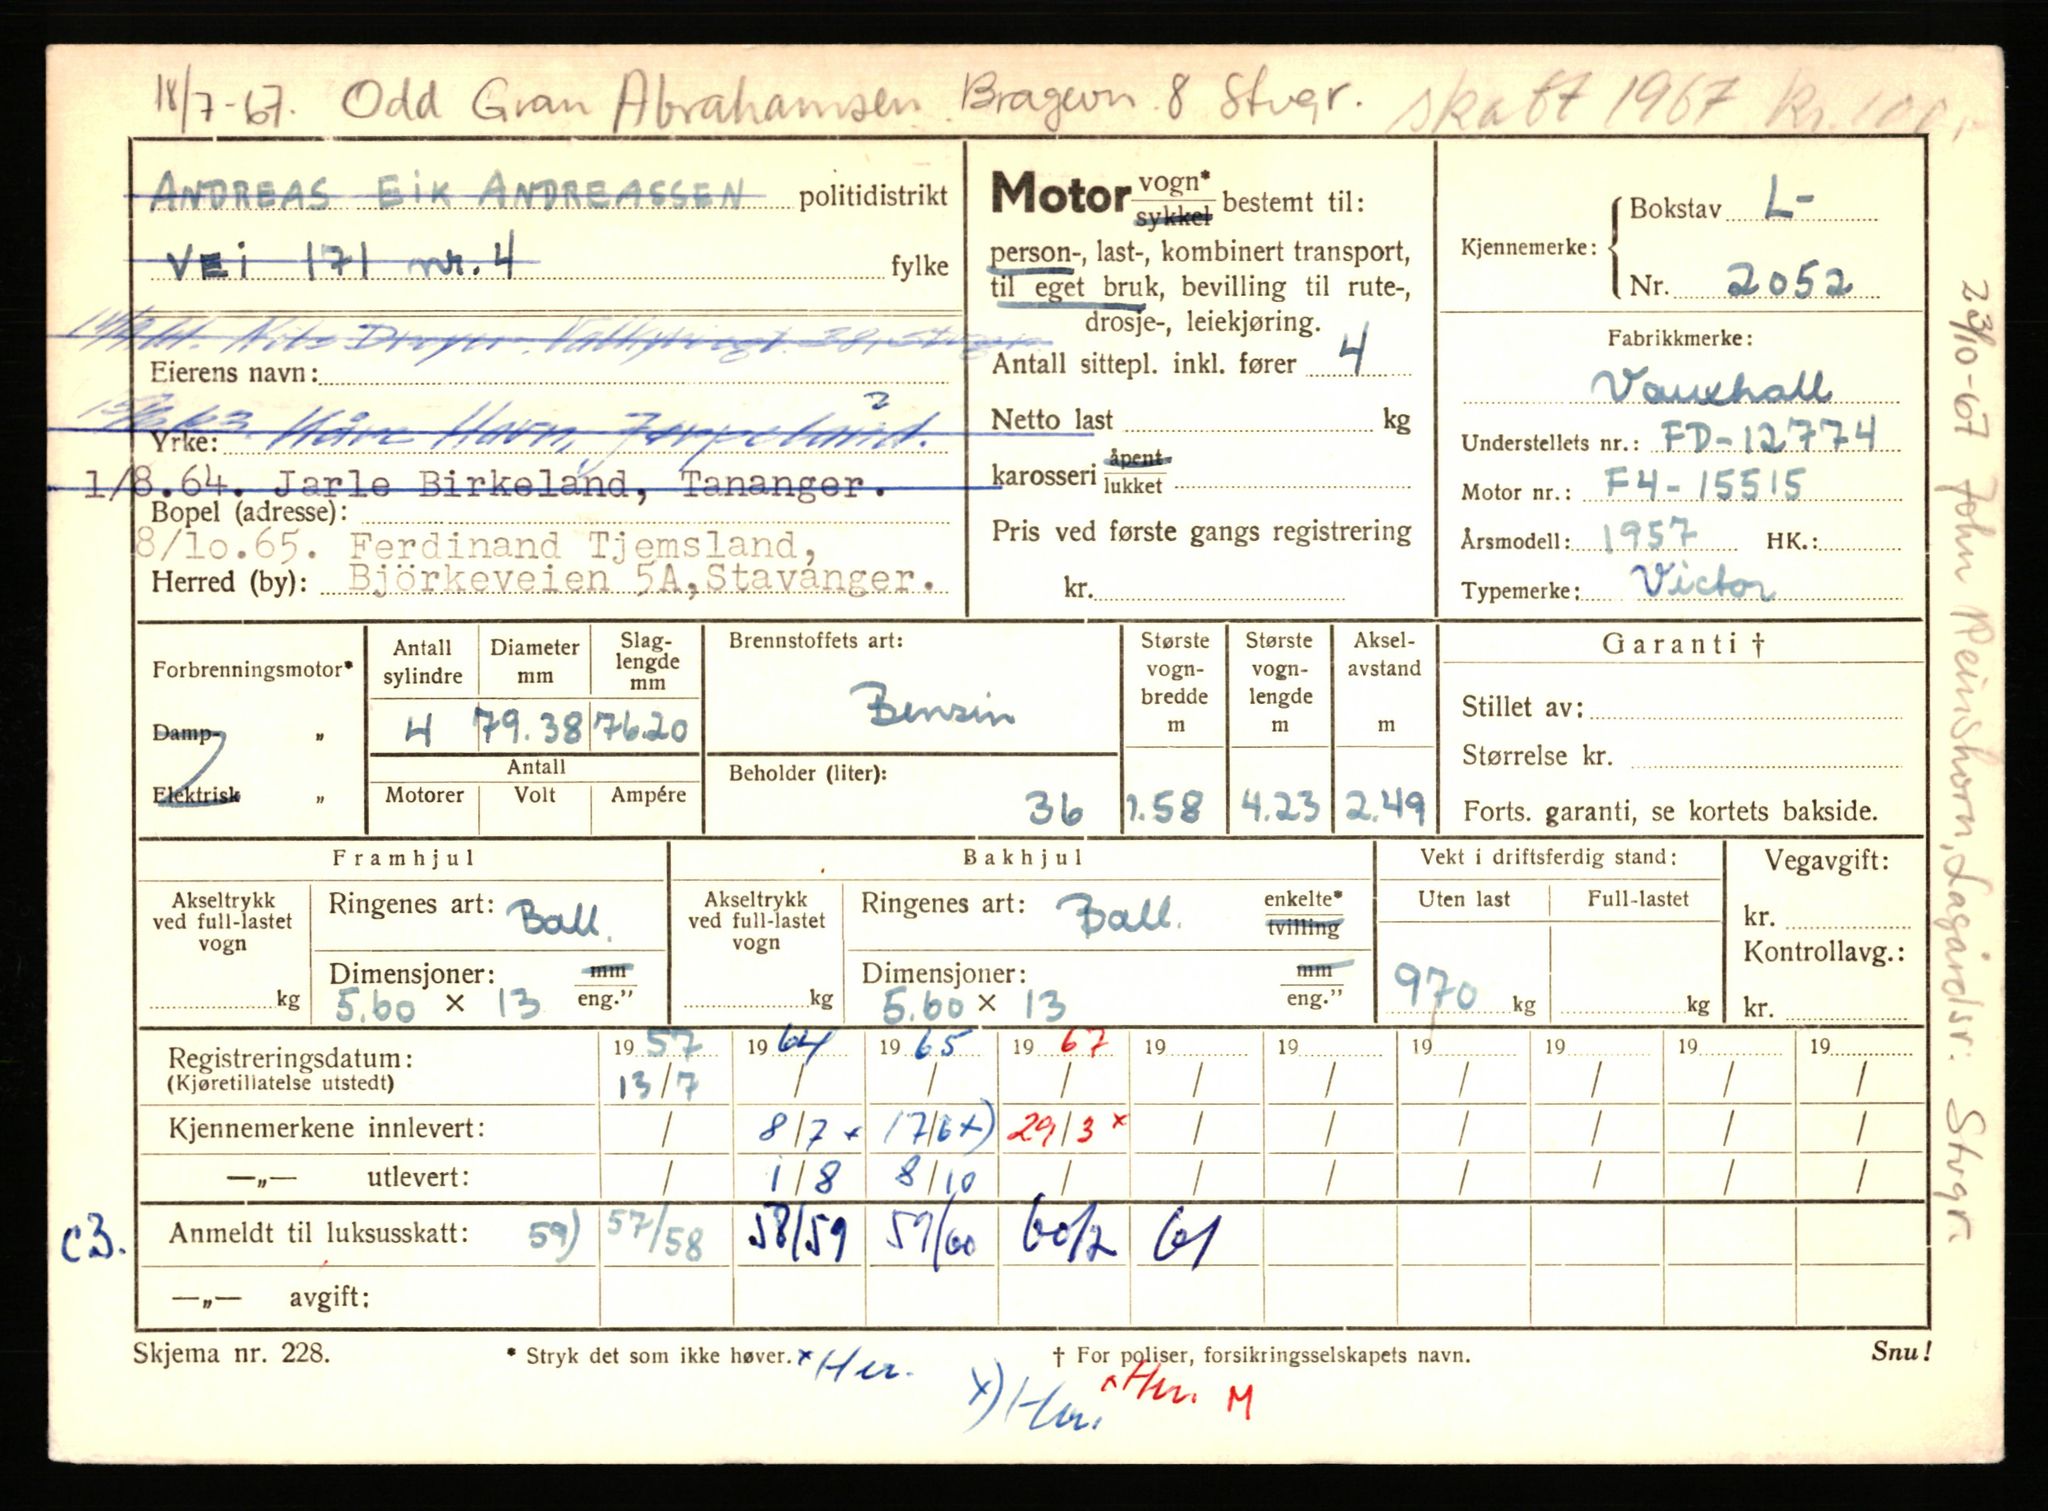 18/7-67. Odd Gran Abrahamsen. Bragevn. 8 Stvgr. skatt 1967 kr. 100,-
ANDREAS EIK ANDREASSEN politidistrikt
VEI 171 nr. 4 fylke
Eierens navn:
Yrke: Kåre Havn, Jørpeland.
1/8.64. Jarle Birkeland, Tananger.
Bopel (adresse):
8/10.65. Ferdinand Tjemsland,
Herred (by): Björkeveien 5A, Stavanger.
Motor vogn* sykkel bestemt til:
person-, last-, kombinert transport,
til eget bruk, bevilling til rute-,
drosje-, leiekjøring.
Antall sittepl. inkl. fører 4
Netto last kg
karosseri åpent lukket
Pris ved første gangs registrering
kr.
Kjennemerke: Bokstav L-
Nr. 2052
Fabrikkmerke:
Vauxhall
Understellets nr.: FD-12774
Motor nr.: F4-15515
Årsmodell: 1957 HK.:
Typemerke: Victor
Forbrenningsmotor*
Damp- „
Elektrisk „
Antall sylindre Diameter mm Slag-lengde mm
4 79.38 76.20
Antall
Motorer Volt Ampére
Brennstoffets art:
Bensin
Beholder (liter):
36
Største vogn-bredde m
1.58
Største vogn-lengde m
4.23
Aksel-avstand m
2.49
Garanti †
Stillet av:
Størrelse kr.
Forts. garanti, se kortets bakside.
Framhjul
Akseltrykk ved full-lastet vogn
kg
Ringenes art: Ball.
Dimensjoner: mm
5.60 × 13 eng.”
Bakhjul
Akseltrykk ved full-lastet vogn
kg
Ringenes art: Ball. enkelte* tvilling
Dimensjoner: mm
5.60 × 13 eng.”
Vekt i driftsferdig stand:
Uten last Full-lastet
970 kg kg
Vegavgift:
kr.
Kontrollavg.:
kr.
Registreringsdatum: 19 57 19 64 19 65 19 67 19 19 19 19 19 19
(Kjøretillatelse utstedt) 13/7 / / / / / / / / /
Kjennemerkene innlevert: / 8/7 x 17/6 x) 29/3 x / / / / / /
—„— utlevert: / 1/8 8/10 / / / / / / /
c3. Anmeldt til luksusskatt: 59) 57/58 58/59 59/60 60/2 61
—„— avgift:
Skjema nr. 228. * Stryk det som ikke høver. x Her. † For poliser, forsikringsselskapets navn. Snu!
x) Her. x Her. M
23/10-67 John Reinshorn, Lagårdsv. Stvgr.